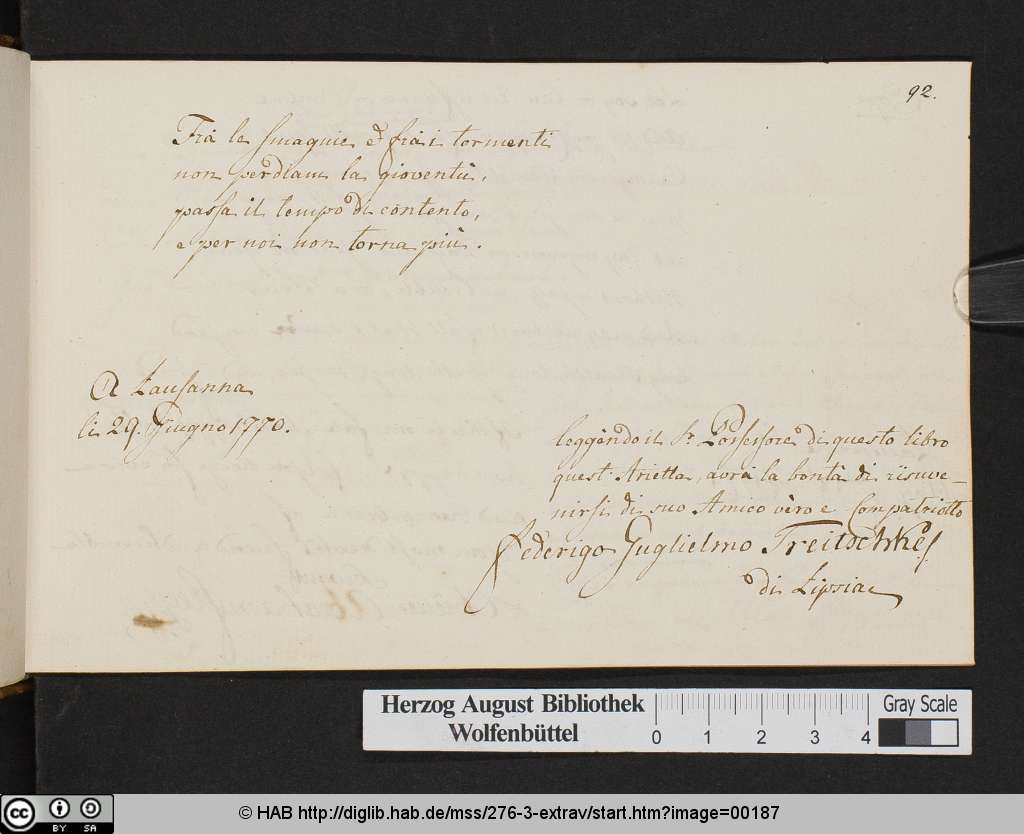 92.
Fra le smaguie e fra i tormenti
non perdiam la gioventù,
passa il tempo di contento,
e per noi non torna più.
A Lausanna
li 29. Giugno 1770.
leggèndo il Sr. Possessore di questo libro
quest' Arietta, avrà la bontà di risuve-
nirsi di suo Amico vèro e Compatriotto
Federigo Guglielmo Treitschke
di Lipsia
Herzog August Bibliothek
Wolfenbüttel
0 1 2 3 4
Gray Scale
cc BY SA
© HAB http://diglib.hab.de/mss/276-3-extrav/start.htm?image=00187